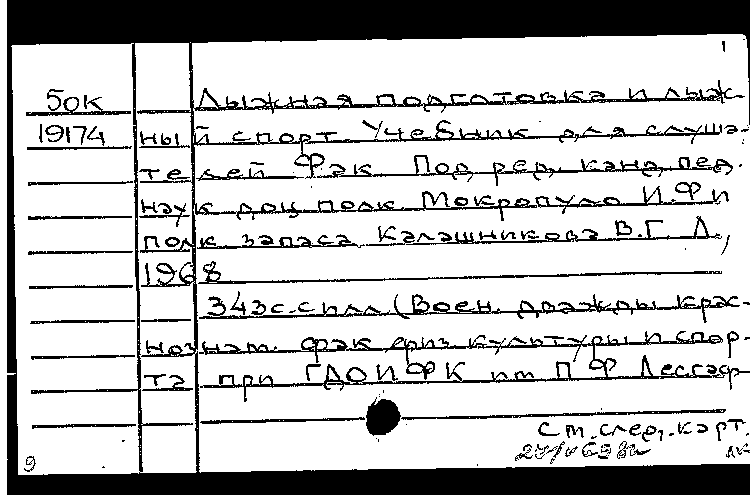 1
50к Лыжная подготовка и лыж-
19174 ный спорт. Учебник для слуша-
телей Фак. Под ред. канд. пед.
наук доц. полк. Мокропуло И.Ф и
полк. запаса Калашникова В.Г. Л.,
1968
343с.с илл. (Воен. дважды крас-
нознам. фак. физ. культуры и спор-
та при ГДОИФК им П Ф Лесгаф-
См. след. карт.
9